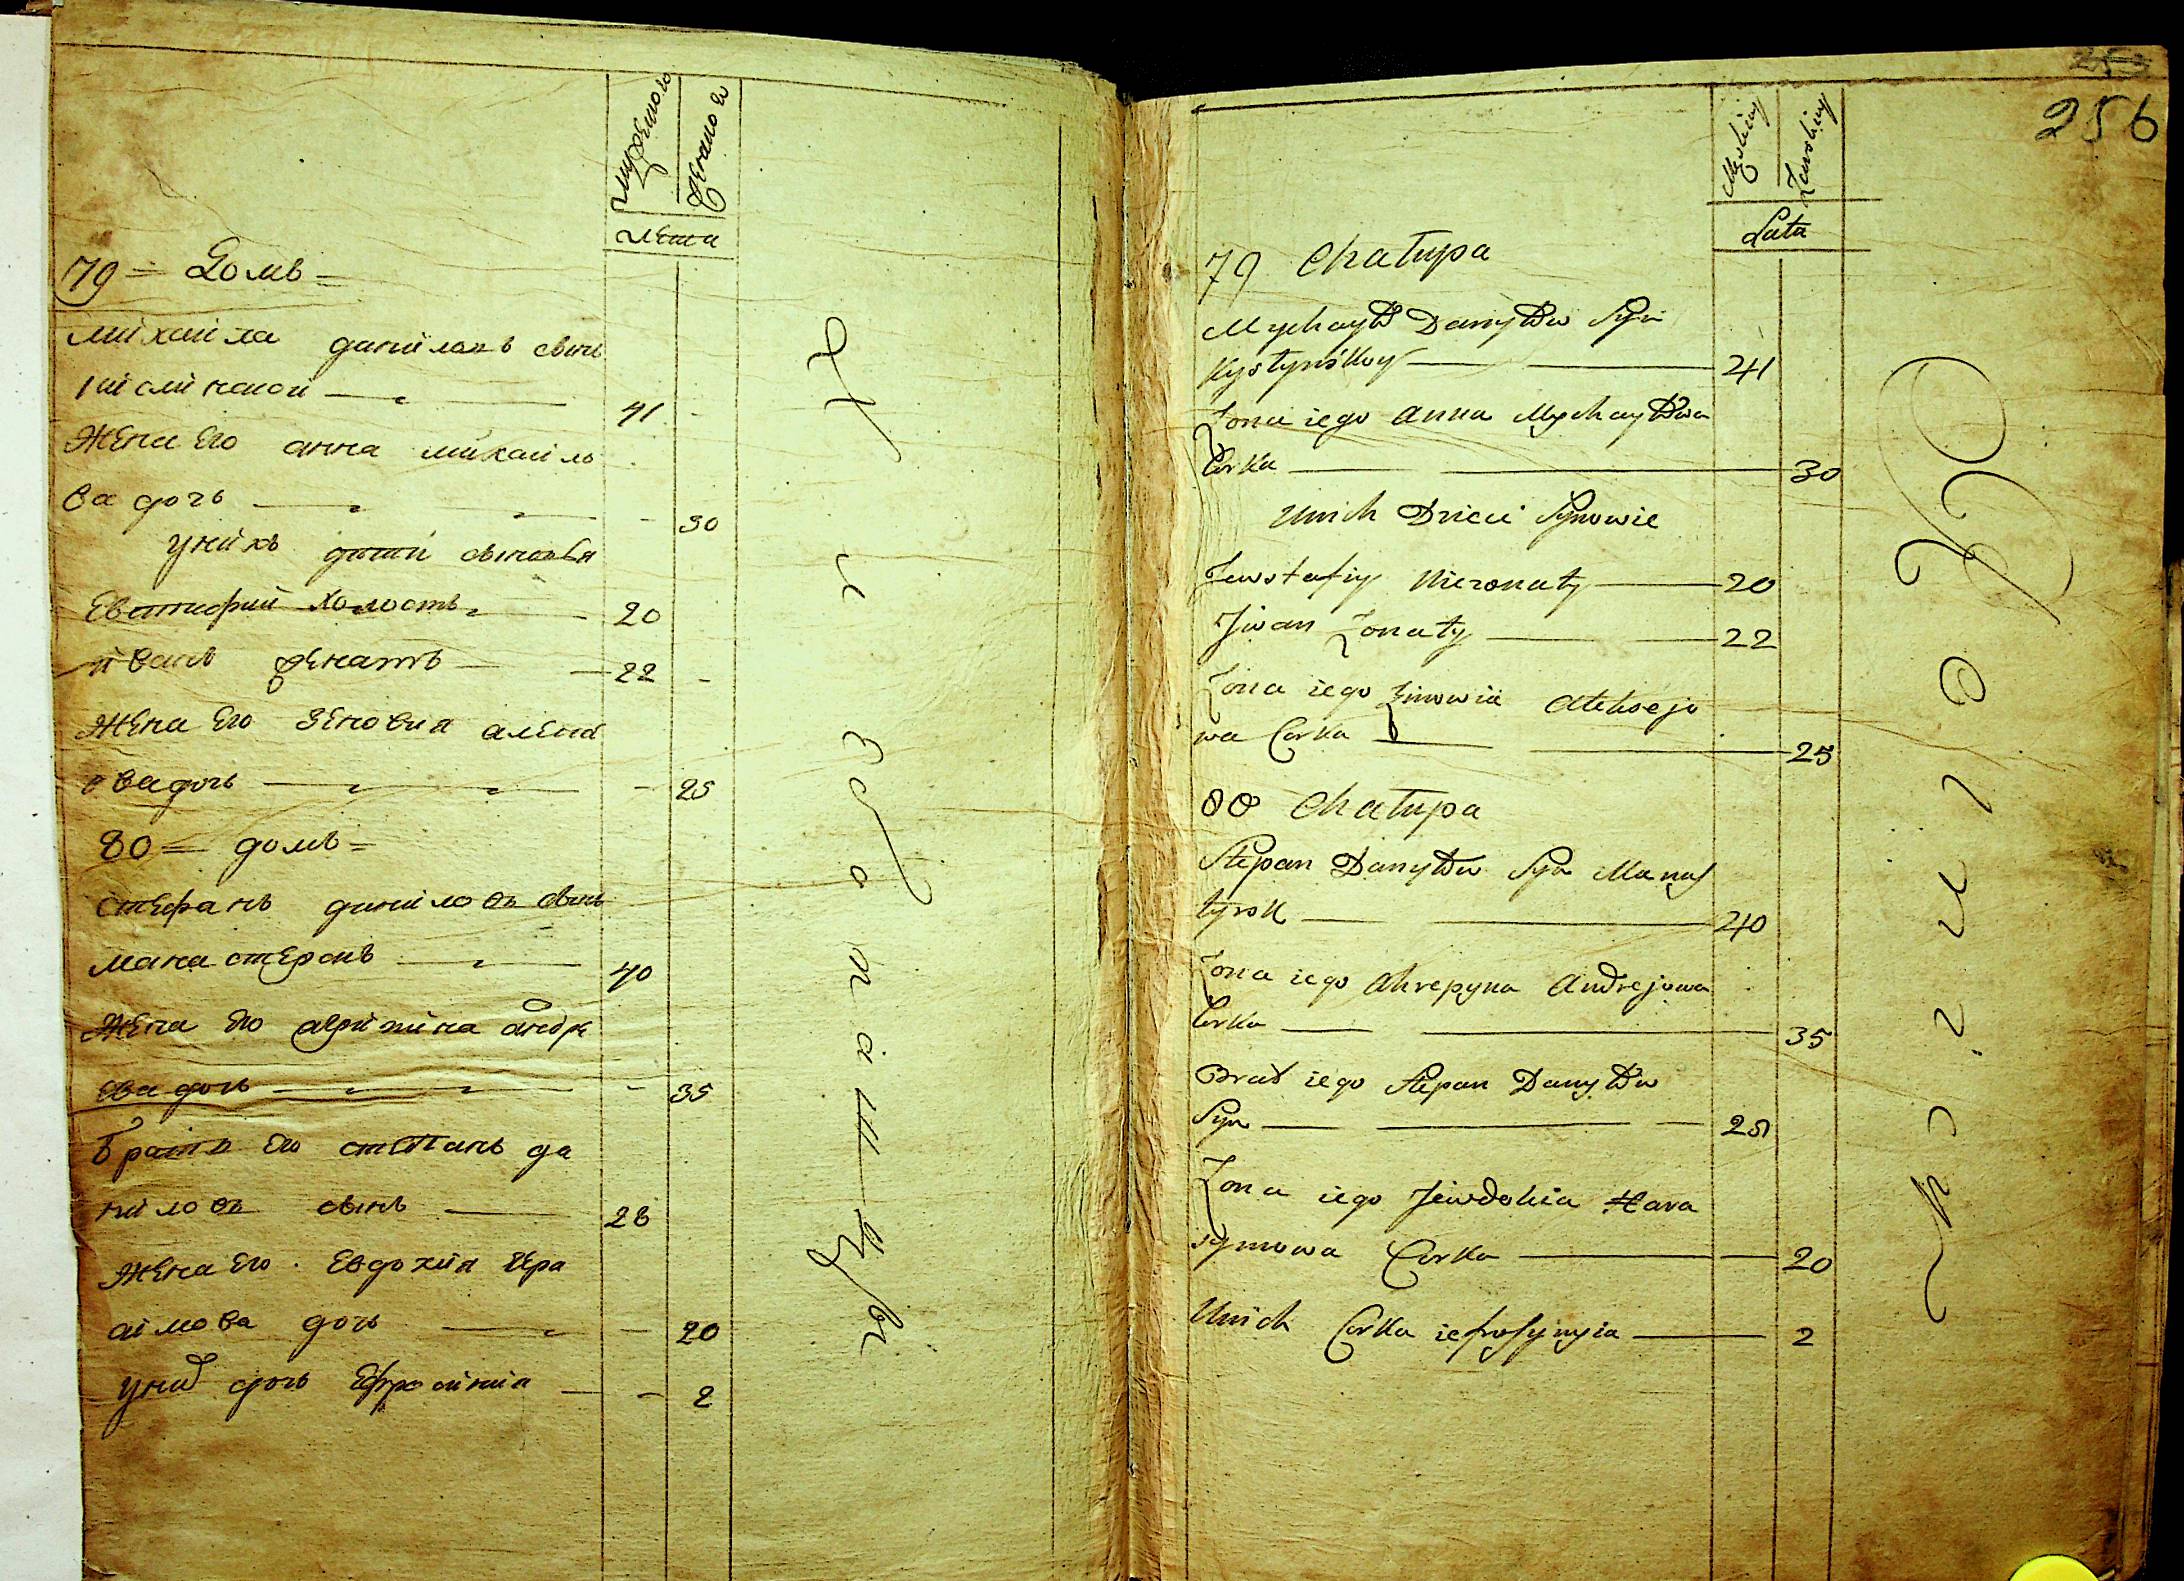 мужеского
женского
лета
79 = Домъ =
михаила данiловъ сынъ
41
Жена Его анна михайло
ва дочь 30
унихъ дети сыновья
Евстафий Холостъ 20
иванъ женатъ 22
Жена Его Зеновия алексе
ева дочь 25
80 = домъ =
Стефанъ даниловъ сынъ
манастерскъ 40
Жена Его агрипина андре
ева дочь 35
братъ Его степанъ да
ниловъ сынъ 28
Жена Его Евдокия Гера
симова дочь 20
уних дочь Ефросиния 2
256
Męskiey
Zenskiey
Lata
79 Chałupa
Mychayło Danyłow Syn
Kystynskoy 41
Zona iego Anna Mychayłowa
Corka 30
Unich Dzieci Synowie
Jewstafiy Niezonaty 20
Jwan Zonaty 22
Zona iego Zinowia Aleksejo
wa Corka 25
80 Chałupa
Stepan Danyłow Syn Manas
tyrsk 40
Zona iego Ahrepyna Andrejowa
Corka 35
Brat iego Stepan Danyłow
Syn 28
Zona iego Jewdokia Hara
symowa Corka 20
Unich Corka iefrosynyia 2